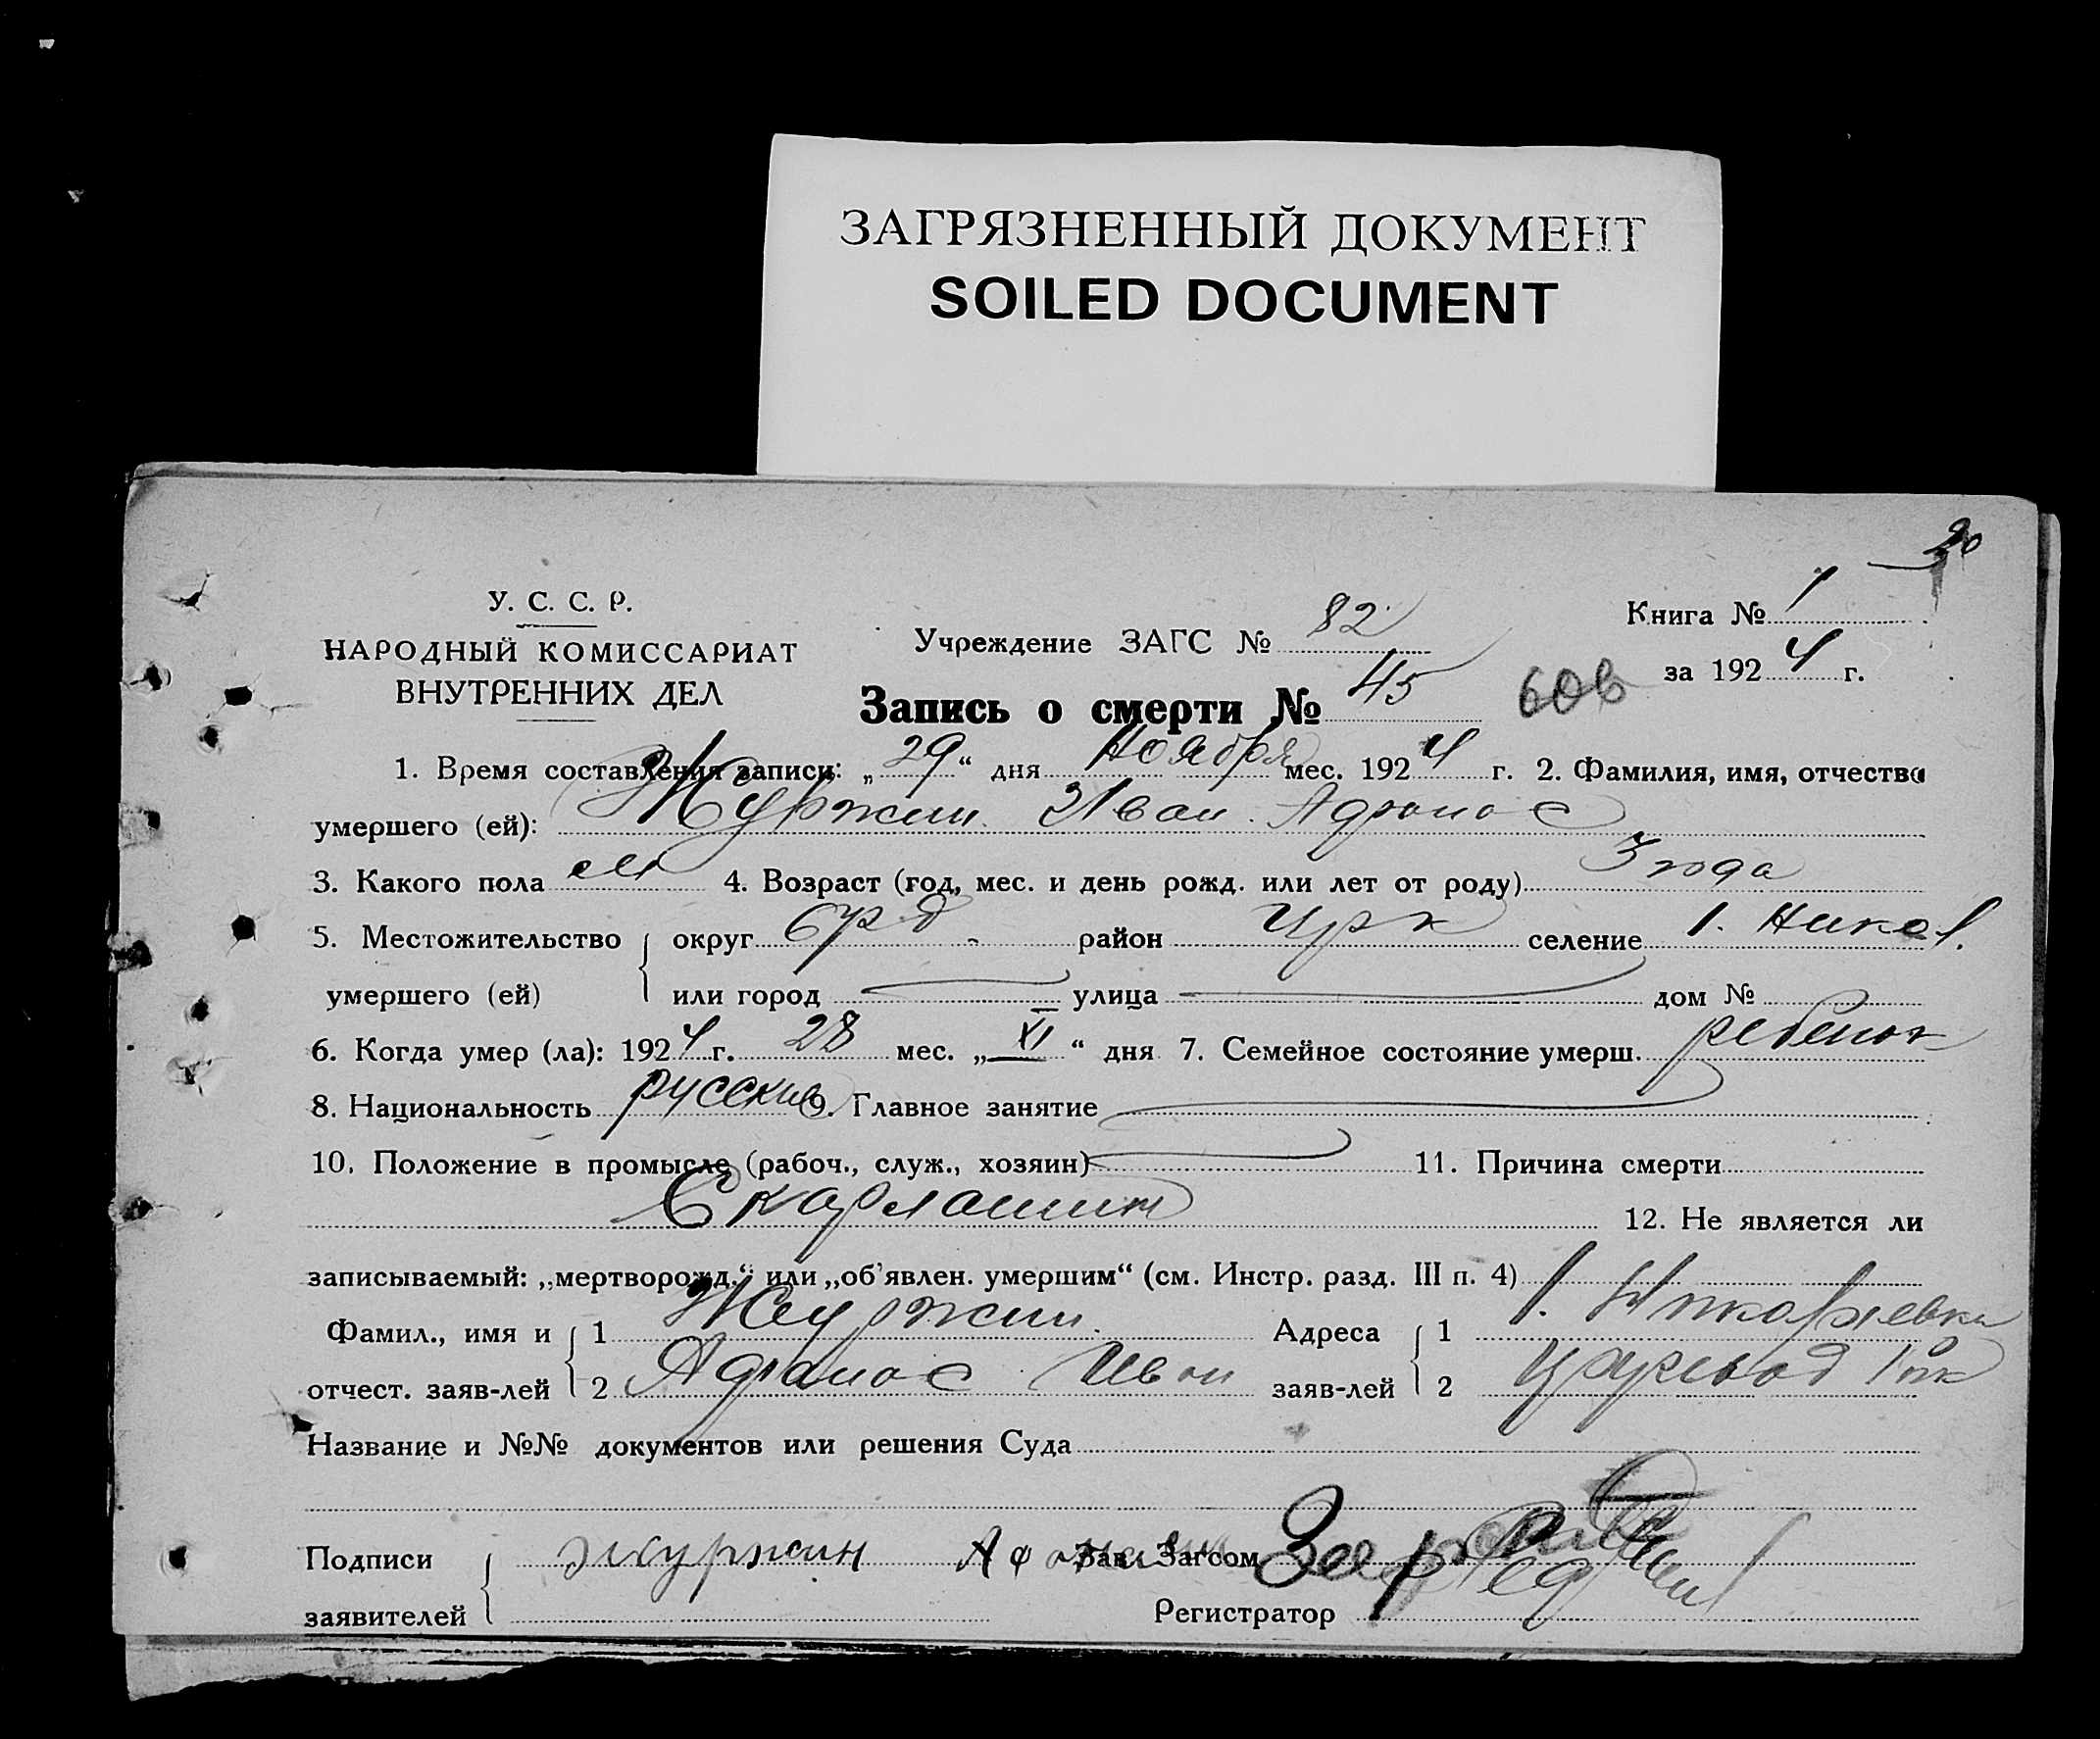 ЗАГРЯЗНЕННЫЙ ДОКУМЕНТ
SOILED DOCUMENT
20
У. С. С. Р.
НАРОДНЫЙ КОМИССАРИАТ
ВНУТРЕННИХ ДЕЛ
Учреждение ЗАГС № 82
Книга № 1
за 1924 г.
Запись о смерти № 45
1. Время составления записи: „29“ дня Ноября мес. 1924 г. 2. Фамилия, имя, отчество
умершего (ей): Журжин Иван Афонас
3. Какого пола м 4. Возраст (год, мес. и день рожд. или лет от роду) 3 года
5. Местожительство округ район Црк селение 1. Никол.
умершего (ей) или город улица дом №
6. Когда умер (ла): 1924 г. 28 мес. „XI“ дня 7. Семейное состояние умерш. ребенок
8. Национальность русский 9. Главное занятие
10. Положение в промысле (рабоч., служ., хозяин) 11. Причина смерти
Скарлатин 12. Не является ли
записываемый: „мертворожд.“ или „об'явлен. умершим“ (см. Инстр. разд. III п. 4)
Фамил., имя и 1 Журжин Адреса 1 1.
отчест. заяв-лей 2 Афанас Иван заяв-лей 2
Название и №№ документов или решения Суда
Подписи журжин Зав. Загсом
заявителей Регистратор